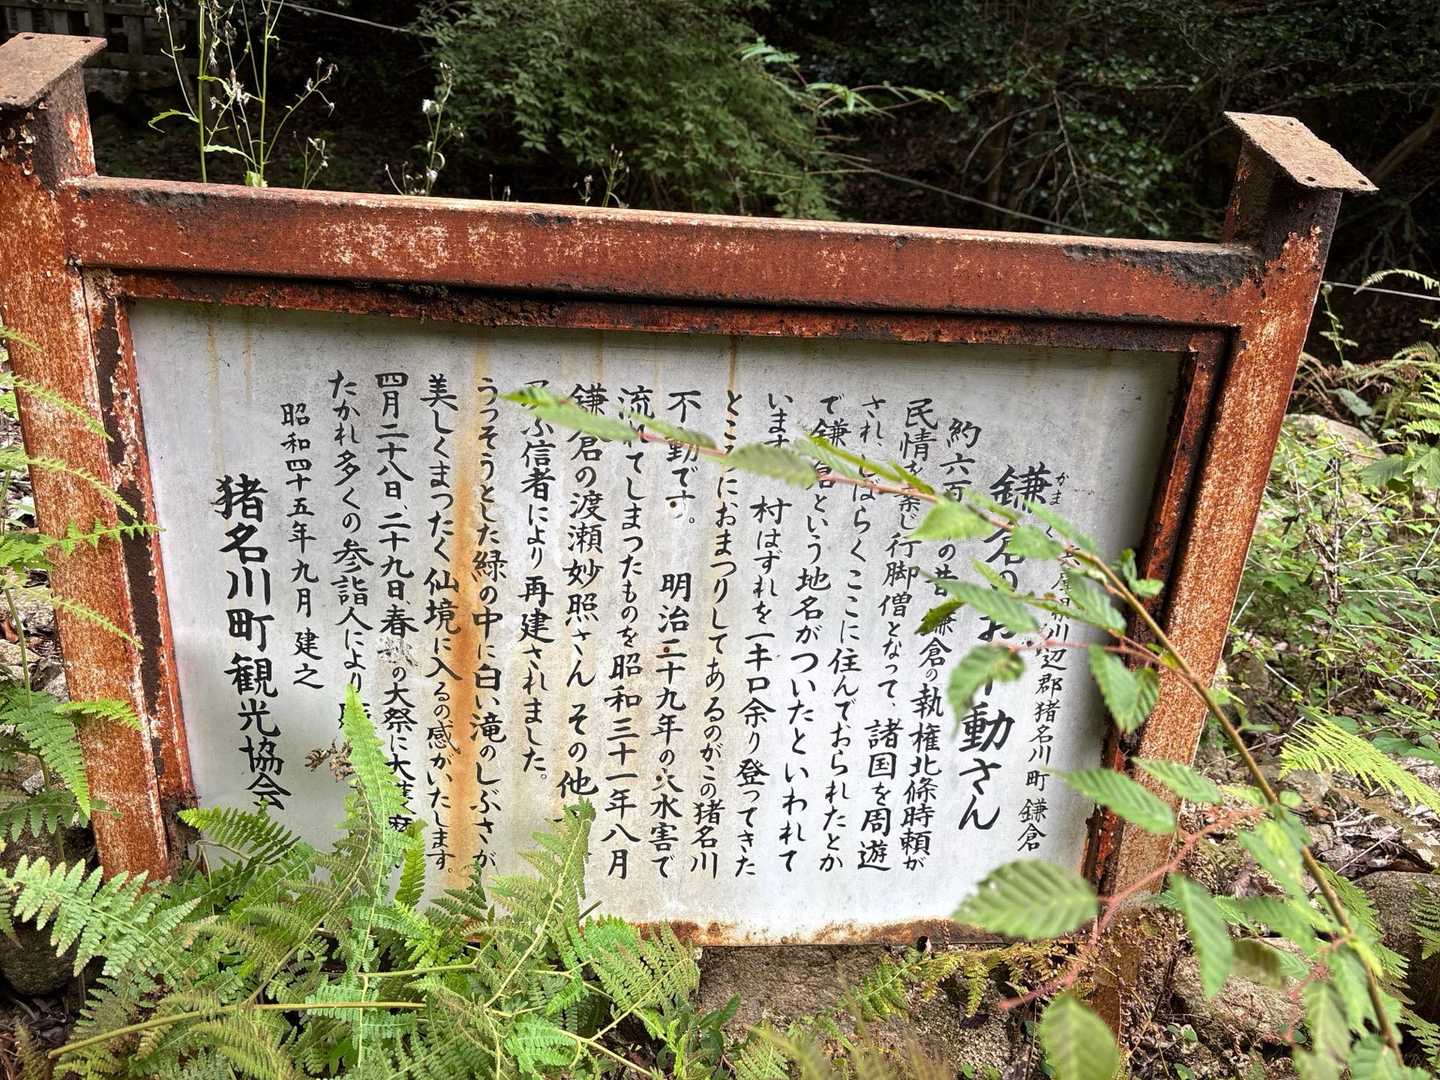 川辺郡猪名川町 鎌倉
かまくら
鎌倉のお不動さん
約六百 の昔 鎌倉の執権北條時頼が
民情を案じ行脚僧となって、諸国を周遊
され、しばらくここに住んでおられたとか
で鎌倉という地名がついたといわれて
います 村はずれを一キロ余り登ってきた
ところにおまつりしてあるのがこの猪名川
不動です。 明治二十九年の大水害で
流れてしまつたものを昭和三十一年八月
鎌倉の渡瀬妙照さん その他
信者により再建されました。
うっそうとした緑の中に白い滝のしぶきが
美しくまつたく仙境に入るの感がいたします。
四月二十八日、二十九日、春 の大祭に大護摩
たかれ多くの参詣人により
昭和四十五年九月 建之
猪名川町観光協会